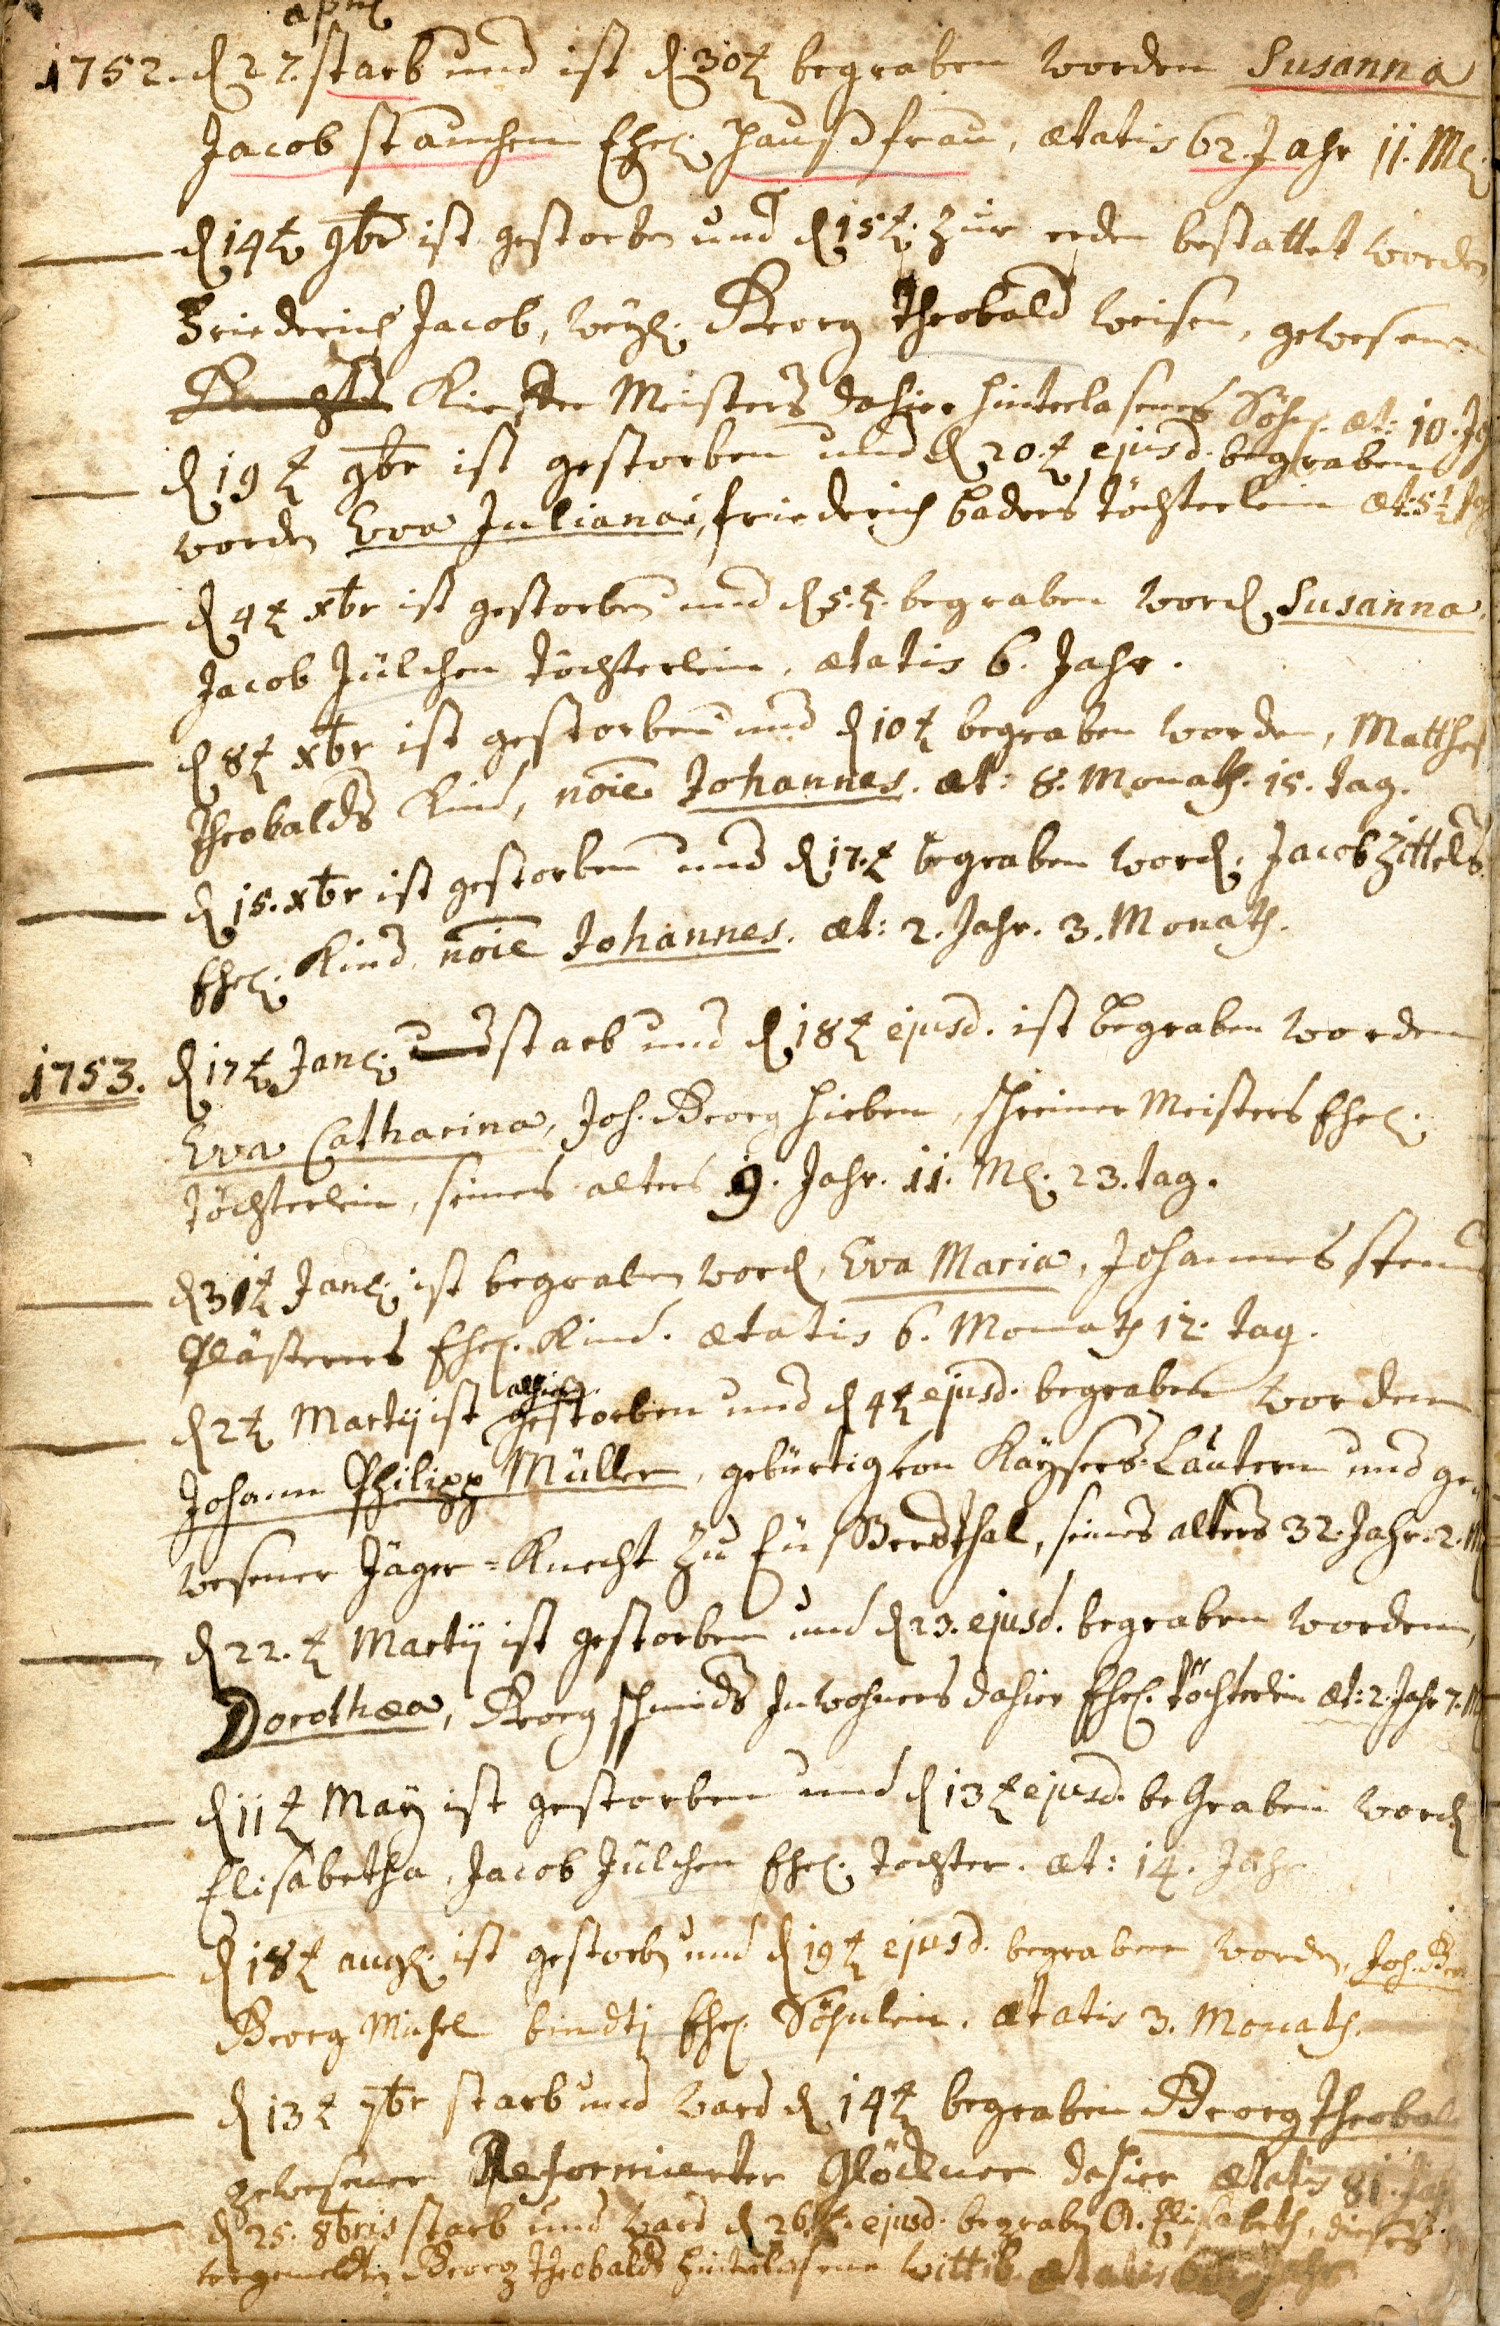 april
1752. d 27. starb und ist d 30t begraben worden Susanna
Jacob stauchen Ehel. Haußfrau, ætatis 62. Jahr 11. M.
d 14t 9br ist gestorben und d 15t. zur erden bestattet worden
Friederich Jacob, weyl. Georg Theobald Weisen, gewesenen
Meisters dahier hinterlasenes Söhn. æt: 10. Jahr
d 19t 9br ist gestorben und d 20.t ejusd. begraben
worden Eva Juliana, friederich baders töchterlein æt: 5½ J
d 4t xbr ist gestorben und d 5.t. begraben word. Susanna,
Jacob Jülchen töchterlein, ætatis 6. Jahr.
d 8t xbr ist gestorben und d 10t begraben worden, Matthes
Theobalds Kind, noie Johannes. æt: 8. Monath. 15. tag.
d 15. xbr ist gestorben und d 17.t begraben word. Jacob Zittels
Ehel. Kind, noie Johannes. æt: 2. Jahr. 3. Monath.
1753. d 17t Jan. und starb und d 18t ejusd. ist begraben worden
Eva Catharina, Joh. Georg Hieben, schreiner Meisters Ehel.
töchterlein, seines alters 9. Jahr. 11. M. 23. tag.
d 31t Jan. ist begraben word, Eva Maria, Johannes
Pflästerers Ehel. Kind. ætatis 6. Monath 12. tag.
alhier
d 2t Martij ist gestorben und d 4t ejusd. begraben worden
Johann Philipp Müller, gebürtig von Kaÿsers-Lautern und ge-
wesener Jäger-Knecht zu Eußersthal, seines alters 32. Jahr. 2. M
d 22.t Martij ist gestorben und d 23. ejusd. begraben worden,
Dorothea, Georg schmids Inwohners dahier Ehel. töchterlein æt: 2. Jahr 7. M
d 11t Maÿ ist gestorben und d 13t ejusd. beGraben word
Elisabetha, Jacob Jülchen Ehel. tochter. æt: 14. Jahr
d 18t aug. ist gestorb und d 19t ejusd. begraben worden, Joh.
Georg Michel Ehel. Söhnlein. ætatis 3. Monath.
d 13t 7br starb und ward d 14t begraben Georg Theobald
gewesener Reformierter Glöckner dahier ætatis 81. Jahr
d 25. 8bris starb und ward d 26.t. ejusd. begraben A. Elisabeth, dieses
vorgemeldten Georg Theobalds hinterlasene wittib ætatis Jahr